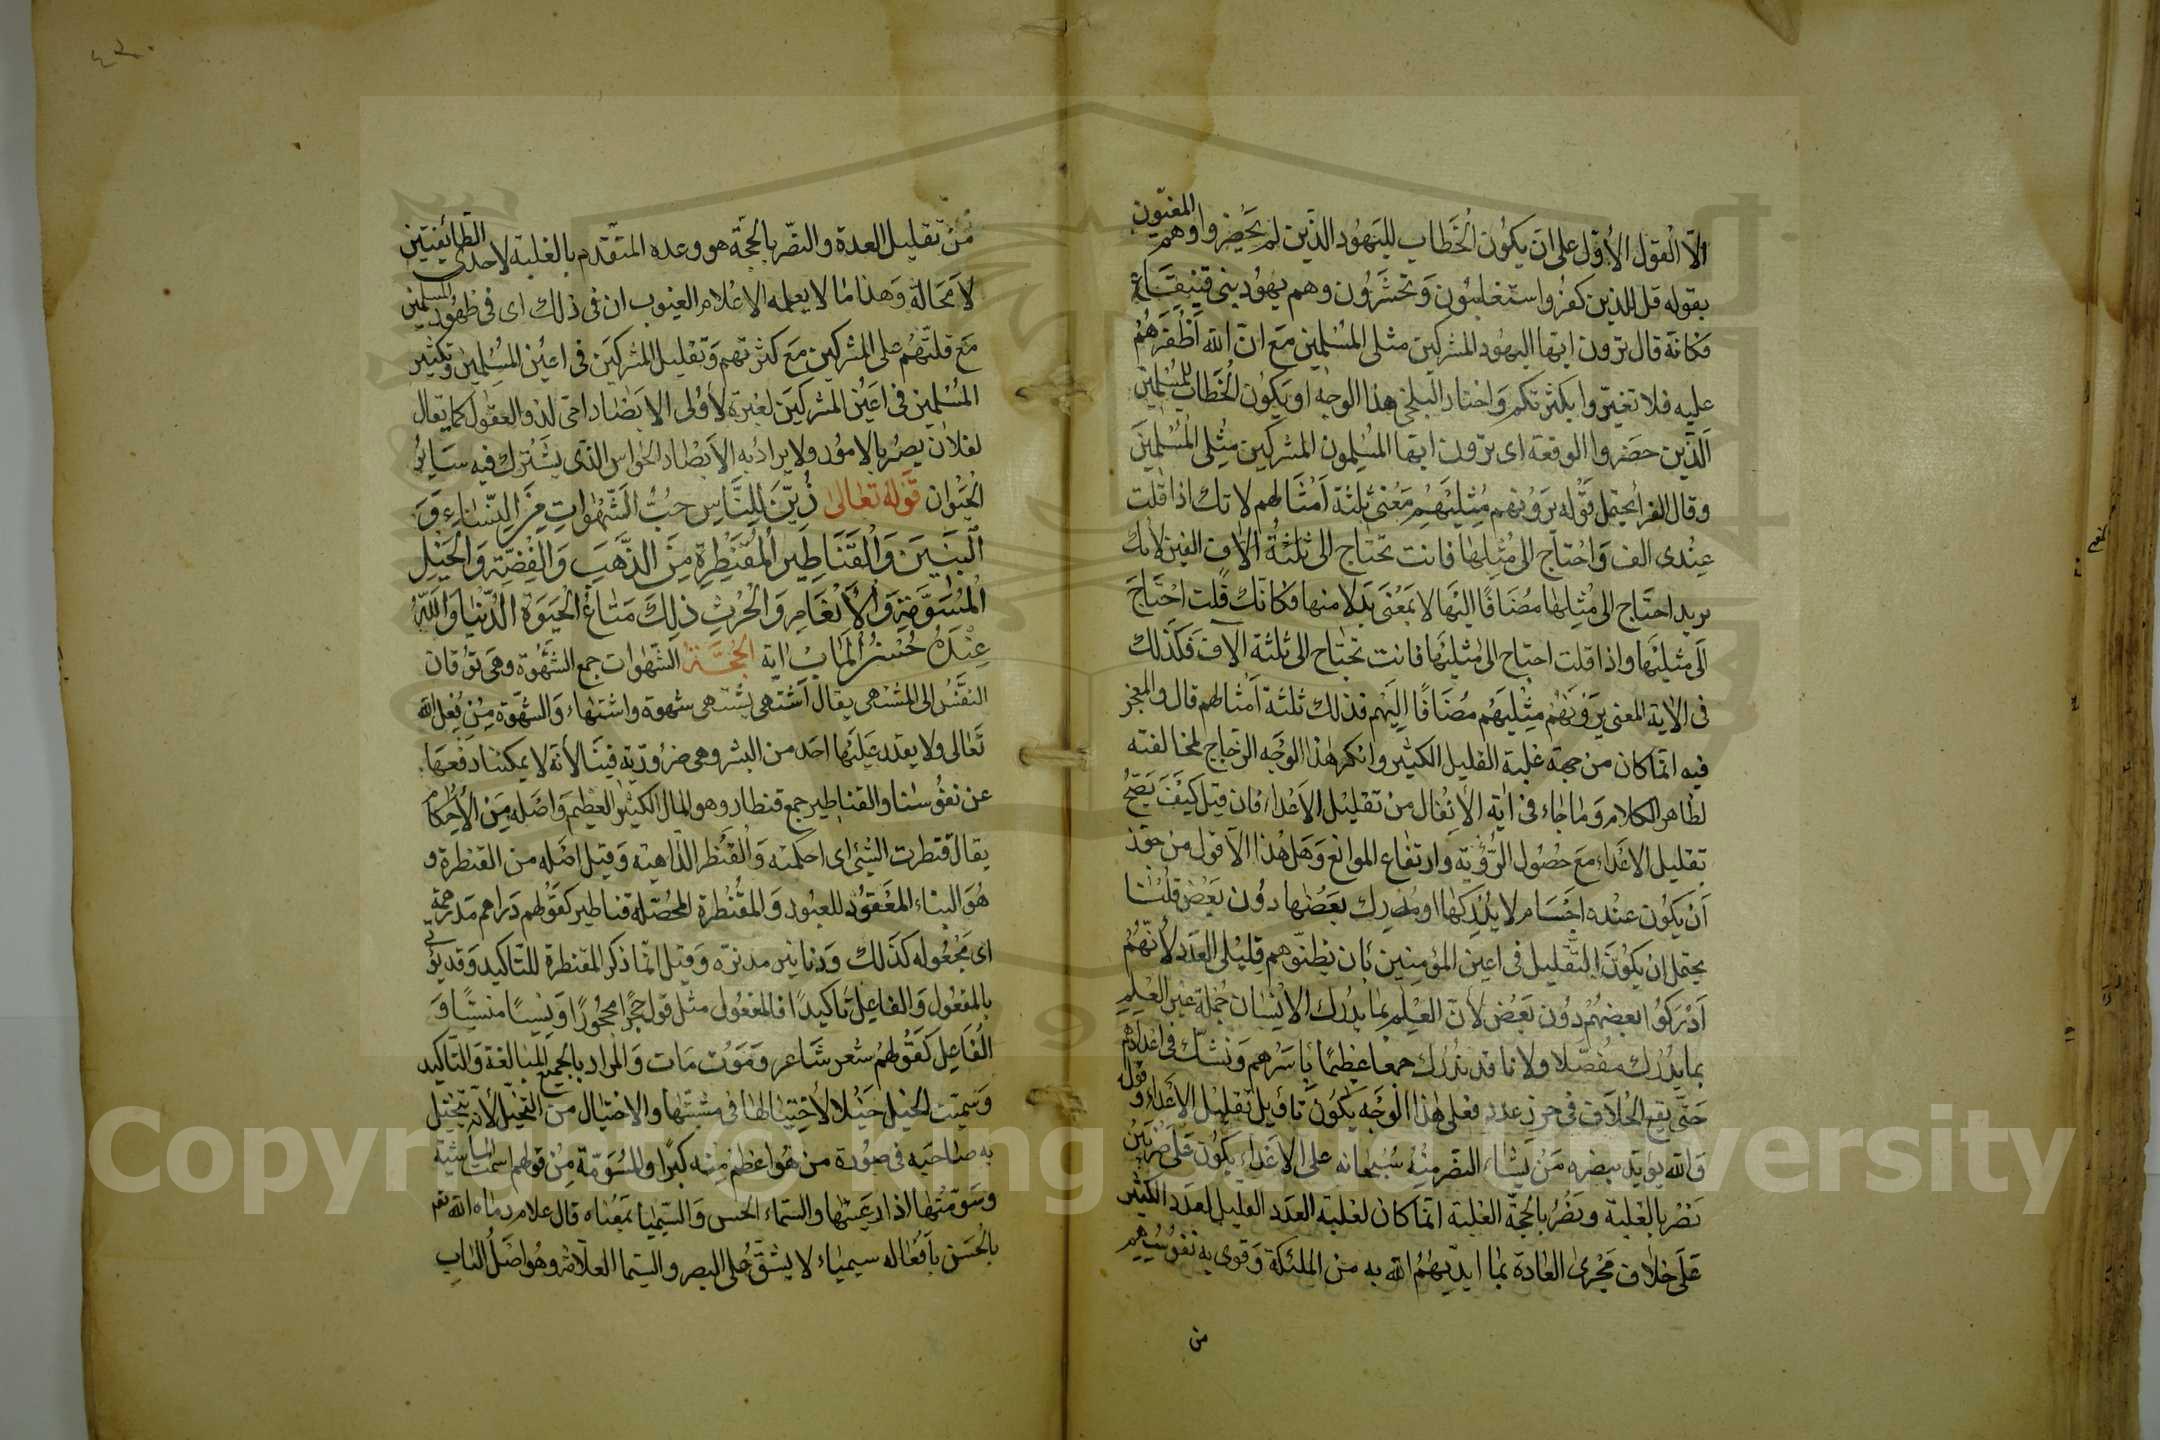 الّا القول الأوّل على ان يكون الخطاب لليهود الذين لم يحضروا وهم المغنيون
بقوله قل للذين كفروا ستغلبون وتحشرون وهم يهود بنى قينقاع
فكانه قال ترون ايها اليهود المشركين مثلى المسلمين مع انّ الله اظفرهم
عليه فلا تغترّوا بكثرتكم واختار البلخى هذا الوجه او يكون الخطاب للمسلمين
الّذين حضروا الوقعة اى ترون ايها المسلمون المشركين مثلى المسلمين
وقال الفرا يحتمل قوله يرونهم مثليهم معنى ثلثة امثالهم لا تك اذا قلت
عندى الف واحتاج الى مثلها فانت تحتاج الى ثلثة الاف الفين لانك
يريد احتاج الى مثلها مضافا اليها لا بمعنى بدلا منها فكانك قلت احتاج
الى مثليها واذا قلت احتاج الى مثليها فانت تحتاج الى ثلثة الآف فكذلك
فى الاية المعنى يرونهم مثليهم مضافا اليهم فذلك ثلثة امثالهم قال والمعجز
فيه انّما كان من جهة غلبة القليل الكثير وانكر هذا الوجه الزجاج لمخالفته
لظاهر الكلام وما جاء فى اية الأنفال من تقليل الأعداء فان قيل كيف يصحّ
تقليل الاعداء مع حصول الرؤية وارتفاع الموانع وهل هذا الا قول من جوّز
أن يكون عنده اجسام لا يدركها او يدرك بعضها دون بعض قلنا
يحتمل ان يكون التقليل فى اعين المؤمنين بان يظنوهم قليلى العدد لأنهم
ادركوا بعضهم دون بعض لأن العلم بما يدرك الانسان جملة غير العلم
بما يدرك مفصّلا ولانا قد ندرك جمعا عظيما باسرهم ونشك فى اعدادهم
حتّى يقع الخلاف فى حرز عدد فعلى هذا الوجه يكون تاويل تقليل الأعداء وقوله
والله يؤيد بنصره من يشاء النصر منه سبحانه على الاعداء يكون على ضربين
نصر بالغلبة ونصر بالحجة الغلبة انّما كان لغلبة العدد القليل لعدد الكثير
على خلاف مجرى العادة بما ايدّهم الله به من الملئكة وقوى به نفوسهم
من
من تقليل العدة والنصر بالحجة هو وعده المتقدم بالغلبة لاحدى الطائفتين
لا محالة وهذا ما لا يعلمه الا علام الغيوب ان فى ذلك اى فى ظهور المسلمين
مع قلتهم على المشركين مع كثرتهم وتقليل المشركين فى اعين المسلمين وتكثير
المسلمين فى اعين المشركين لعبرة لأولى الابصار اى لذوى العقول كما يقال
لفلان بصر بالامور ولا يراد به الابصار الحواس الذى يشترك فيه سائر
الحيوان قوله تعالى زُيّن للناس حبّ الشهوات من النساء و
البنين والقناطير المقنطرة من الذهب والفضّة والخيل
المسوّمة والأنعام والحرث ذلك متاع الحيوة الدنيا والله
عنده حسن المآب اية الحجّة الشهوات جمع الشهوة وهى توقان
النفس الى المشتهى يقال اشتهى يشتهى شهوة واشتهاء والشهوة من فعل الله
تعالى ولا يقدر عليها احد من البشر وهى ضروريّة فينا لأنه لا يمكننا دفعها
عن نفوسنا والقناطير جمع قنطار وهو المال الكثير العظيم واصله من الأحكام
يقال قنطرت الشئ اى احكمته والقنطر الداهية وقيل اصله من القنطرة و
هو البناء المعقود للعبور والمقنطرة المحصّلة قناطير كقولهم دراهم مدرهمة
اى مجعوله كذلك ودنانير مدنرة وقيل انّما ذكر المقنطرة للتاكيد وقد يؤتى
بالمفعول والفاعل تاكيدا فالمفعول مثل قوله حجرا محجورا ونسيا منسيا و
الفاعل كقولهم شعر شاعر وموت مات والمراد بالجميع المبالغة والتاكيد
وسميت الخيل خيلا لأختيالها فى مشيتها والاختيال من التخيل لأنه يتخيل
به صاحبه فى صورة من هو اعظم منه كبرا والمسومة من قولهم اسمت الماشية
وسوّمتها اذا رعيتها والسماء الحسن والسيميا بمعناه قال غلام رماه الله
بالحسن يافعا له سيمياء لا يشق على البصر والسيما العلامة وهو اصل الباب